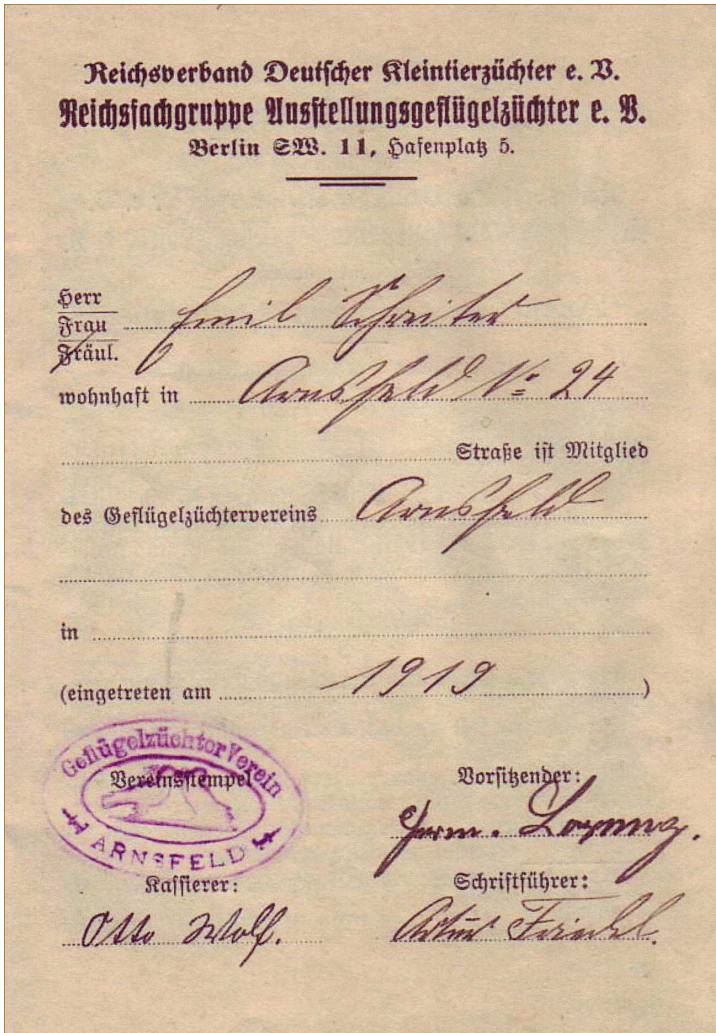 Reichsverband Deutscher Kleintierzüchter e. V.
Reichsfachgruppe Ausstellungsgeflügelzüchter e. V.
Berlin SW. 11, Hafenplatz 5.
Herr
Frau Emil Schreiter
Fräul.
wohnhaft in Arnsfeld No 24
Straße ist Mitglied
des Geflügelzüchtervereins Arnsfeld
in
(eingetreten am 1919)
Geflügelzüchter Verein
ARNSFELD
Vereinsstempel
Vorsitzender:
Herm.
Kassierer:
Schriftführer:
Otto Wolf.
Artur